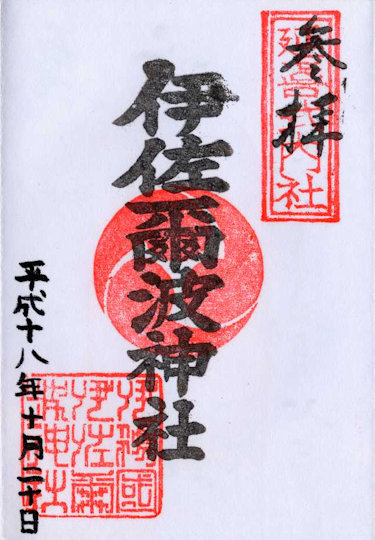 参拝
延喜式内社
伊佐爾波神社
伊豫國
伊佐爾
波神社
平成十八年十月二十日